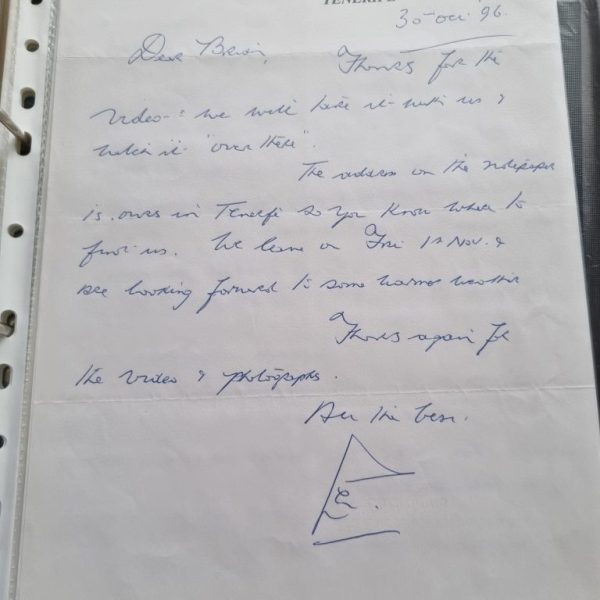 TENERIFE
30 Oct 96.
Dear Brian,
Thanks for the
video - we will take it with us &
watch it "over there".
The address on the notepaper
is ours in Tenerife so you know where to
find us. We leave on Fri 1st Nov. &
are looking forward to some warmer weather
Thanks again for
the video & photographs.
All the best.